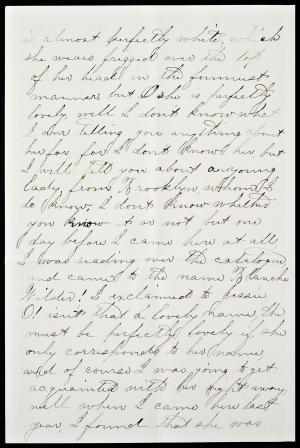 is almost perfectly white, which
she wears frizzed over the top
of her head in the funniest
manner, but O she is perfectly
lovely, well I don't know what
I am telling you anything about
her for for I don't know her, but
I will tell you about a young
lady from Brooklyn whom I
do know, I don't know whether
you know it or not but one
day before I came here at all
I was reading over the catalogue
and came to the name Blanche
Wilder! I exclaimed to Jessie
O! isn't that a lovely name, she
must be perfectly lovely if she
only corresponds to her name,
and of course I was going to get
acquainted with her right away,
well when I came here last
year, I found that she was